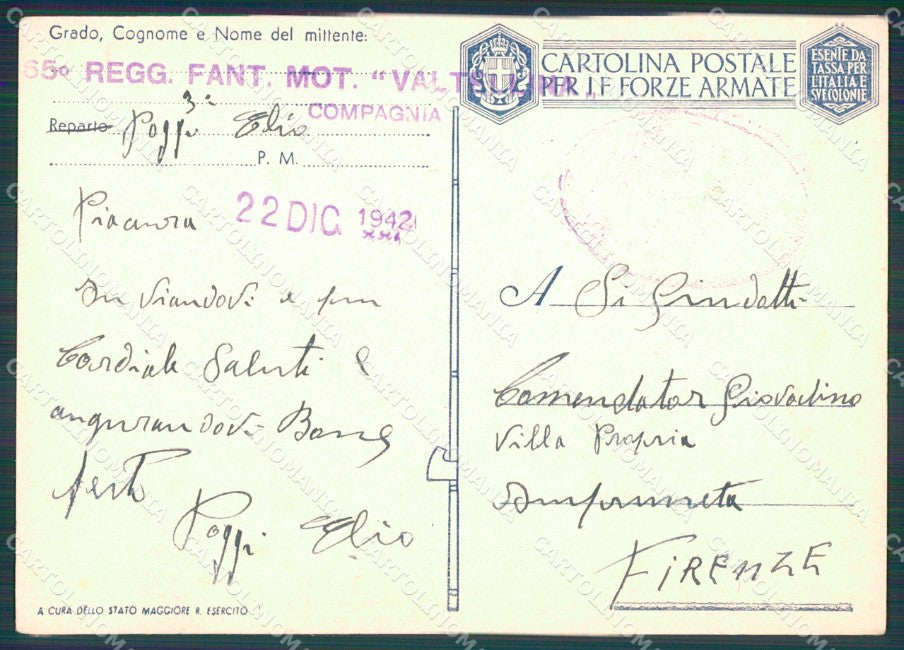 Grado, Cognome e Nome del mittente:
65º REGG. FANT. MOT. "VALTELLINA"
3ª COMPAGNIA
Reparto Poggi Elio
P. M.
22 DIC 1942
XXI
Inviandovi e più
Cordiale Saluti e
augurandovi Bone
feste
Poggi Elio
A CURA DELLO STATO MAGGIORE R. ESERCITO
CARTOLINA POSTALE
PER LE FORZE ARMATE
ESENTE DA
TASSA PER
L'ITALIA E
SVE COLONIE
A
Comendator Giovadino
Villa Propria
Impruneta
FIRENZE
CARTOLINOMANIA